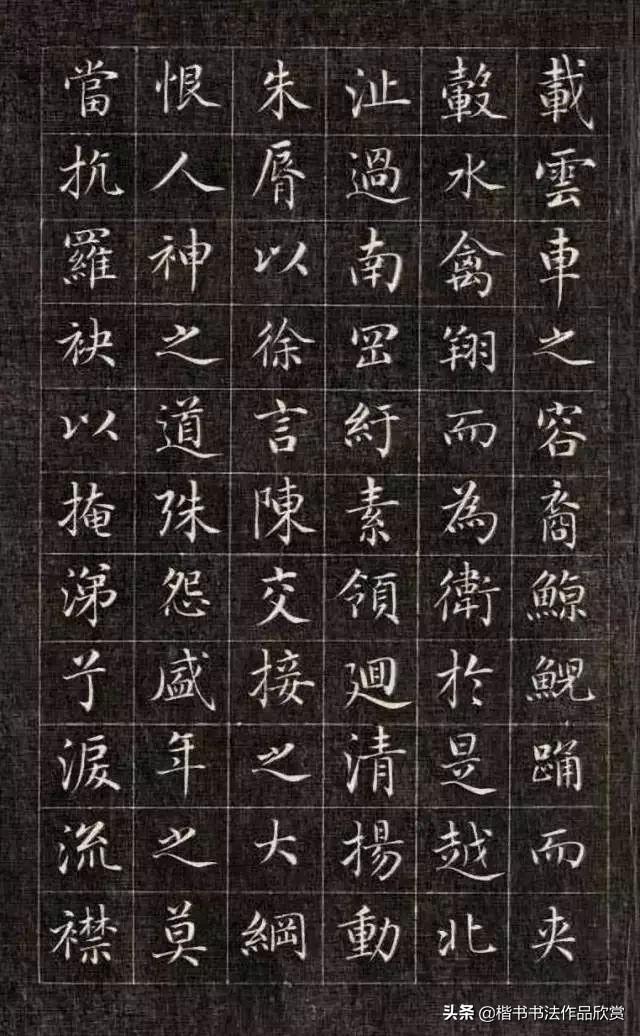 載雲車之容裔鯨鯢踊而夾
轂水禽翔而為衛於是越北
沚過南岡紆素領廻清揚動
朱脣以徐言陳交接之大綱
恨人神之道殊怨盛年之莫
當抗羅袂以掩涕兮淚流襟
头条 @楷书书法作品欣赏